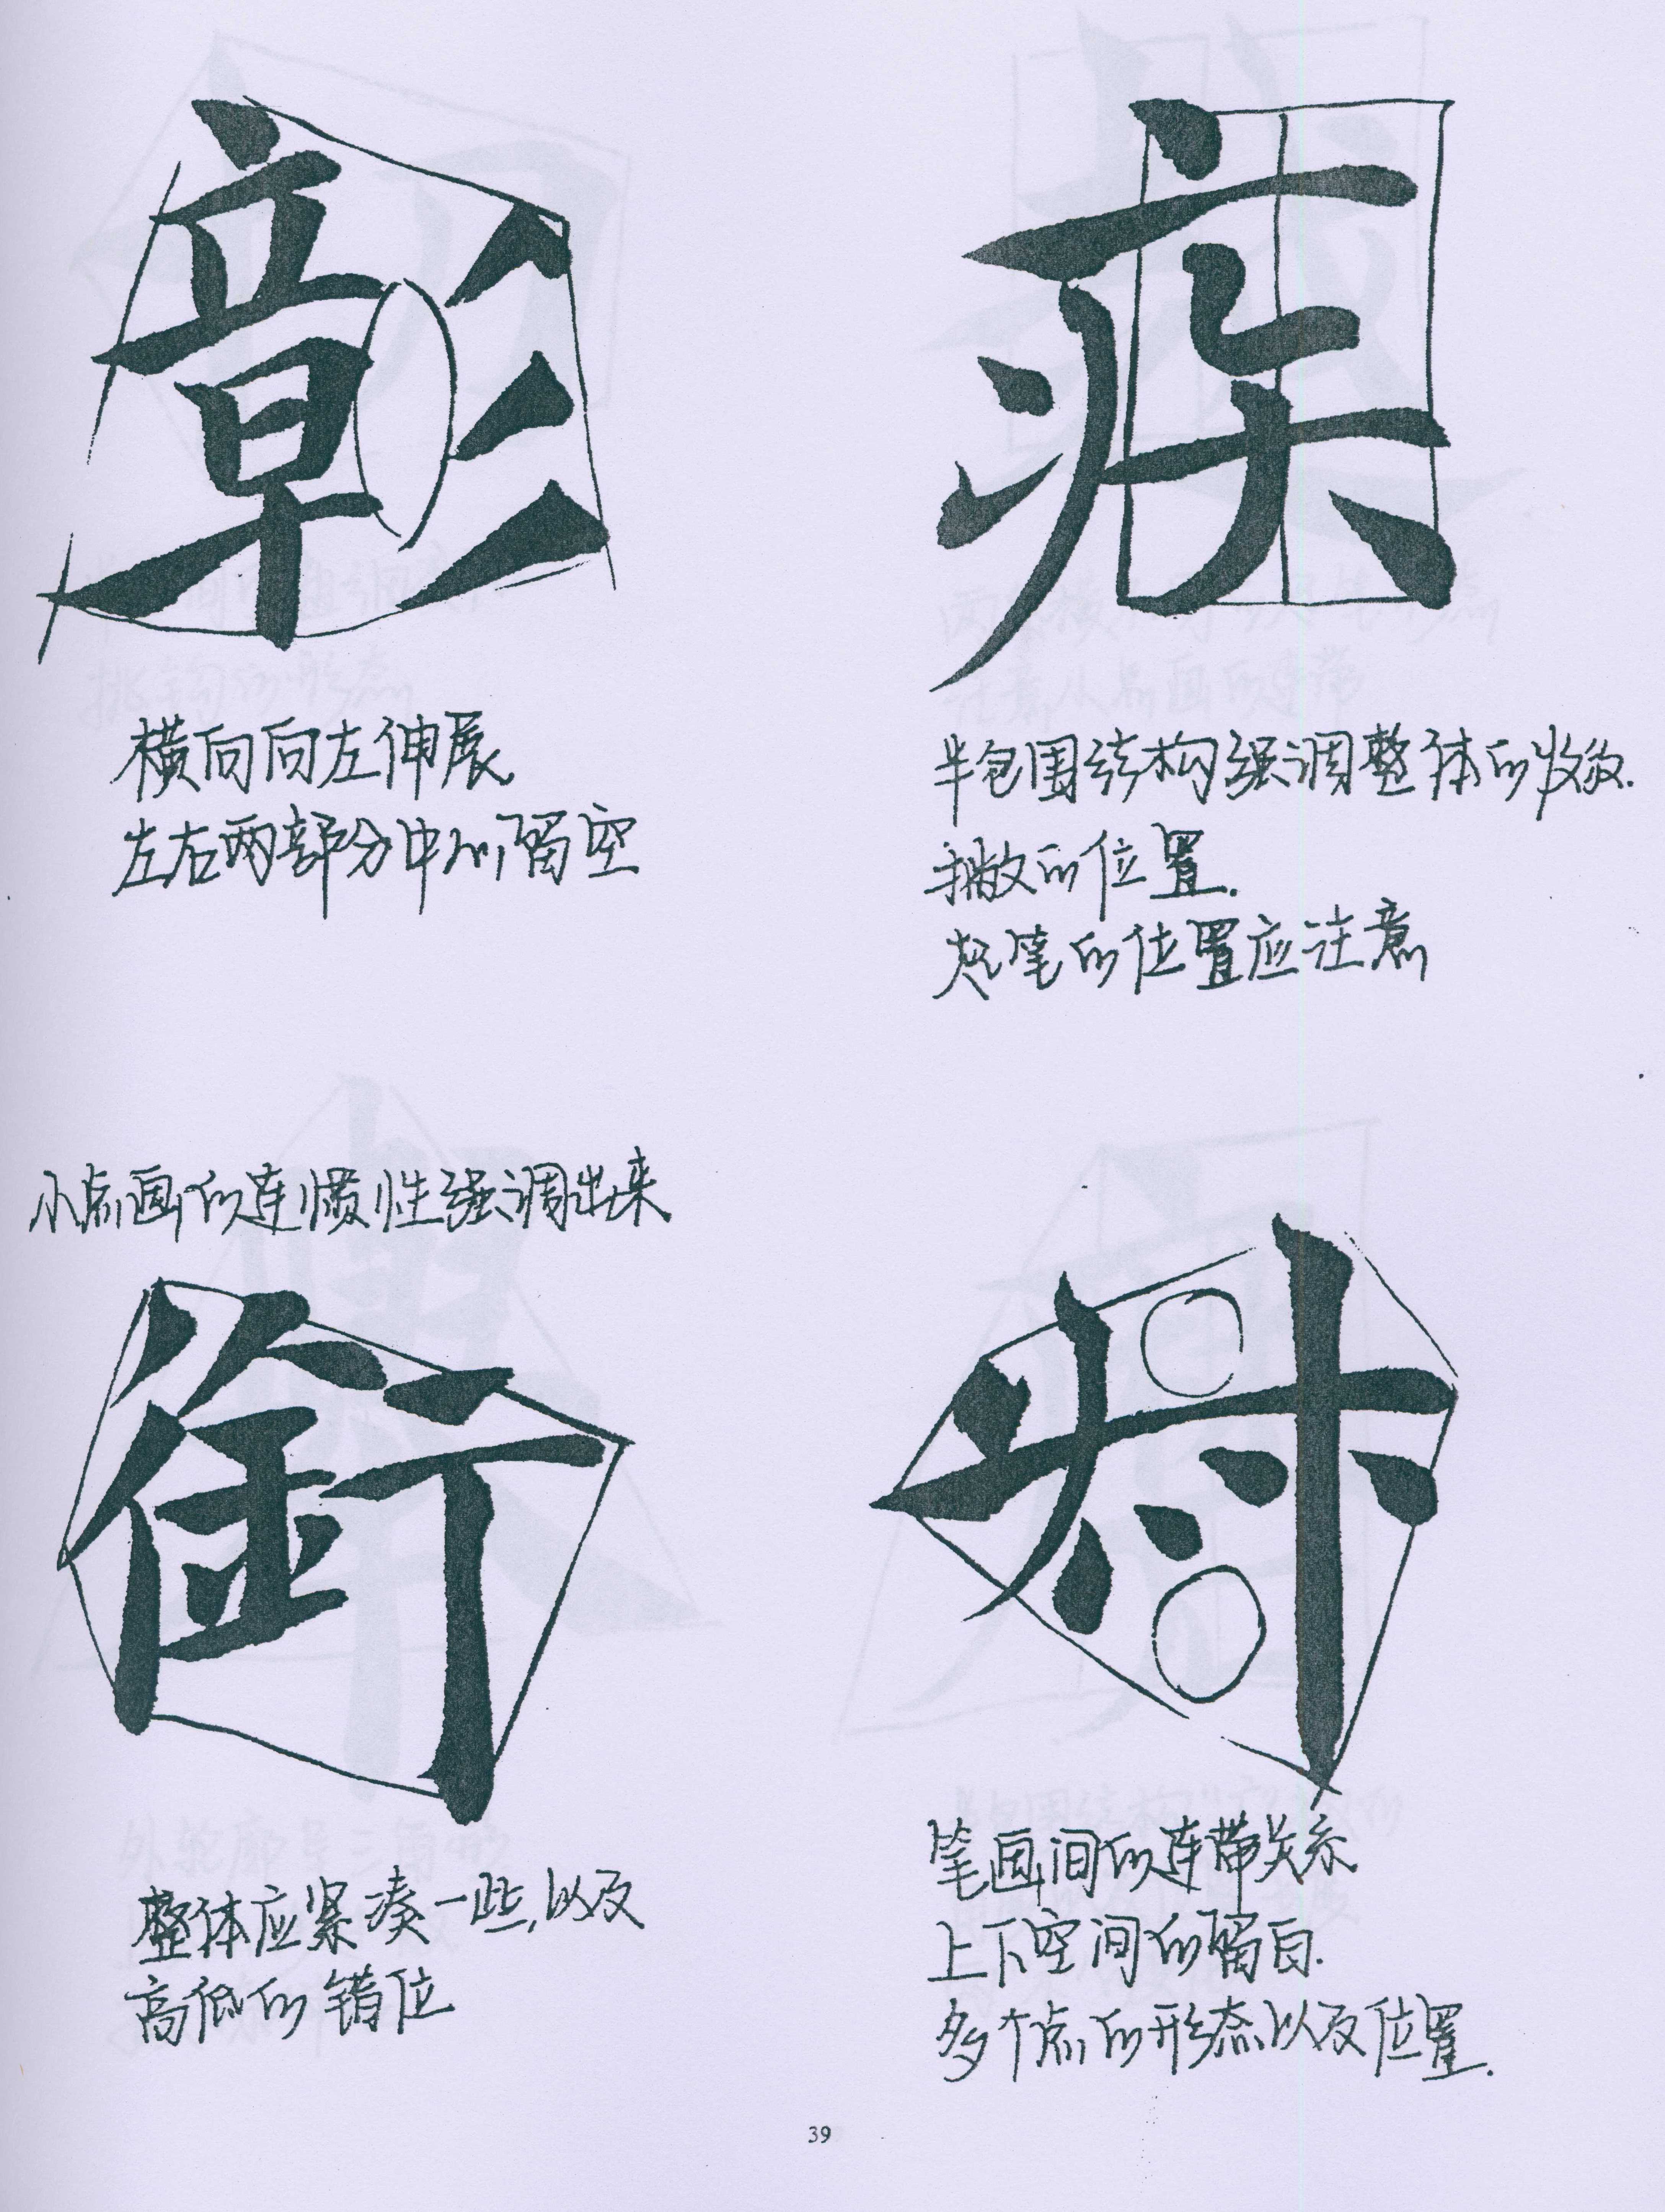 彰
横向向左伸展
左右两部分中心留空
疾
半包围结构强调整体的收敛.
撇的位置.
起笔的位置应注意
小点画的连惯性强调出来
銜
整体应紧凑一些,以及
高低的错位
笔画间的连带关系
上下空间的留白.
多个点的形态以及位置.
39